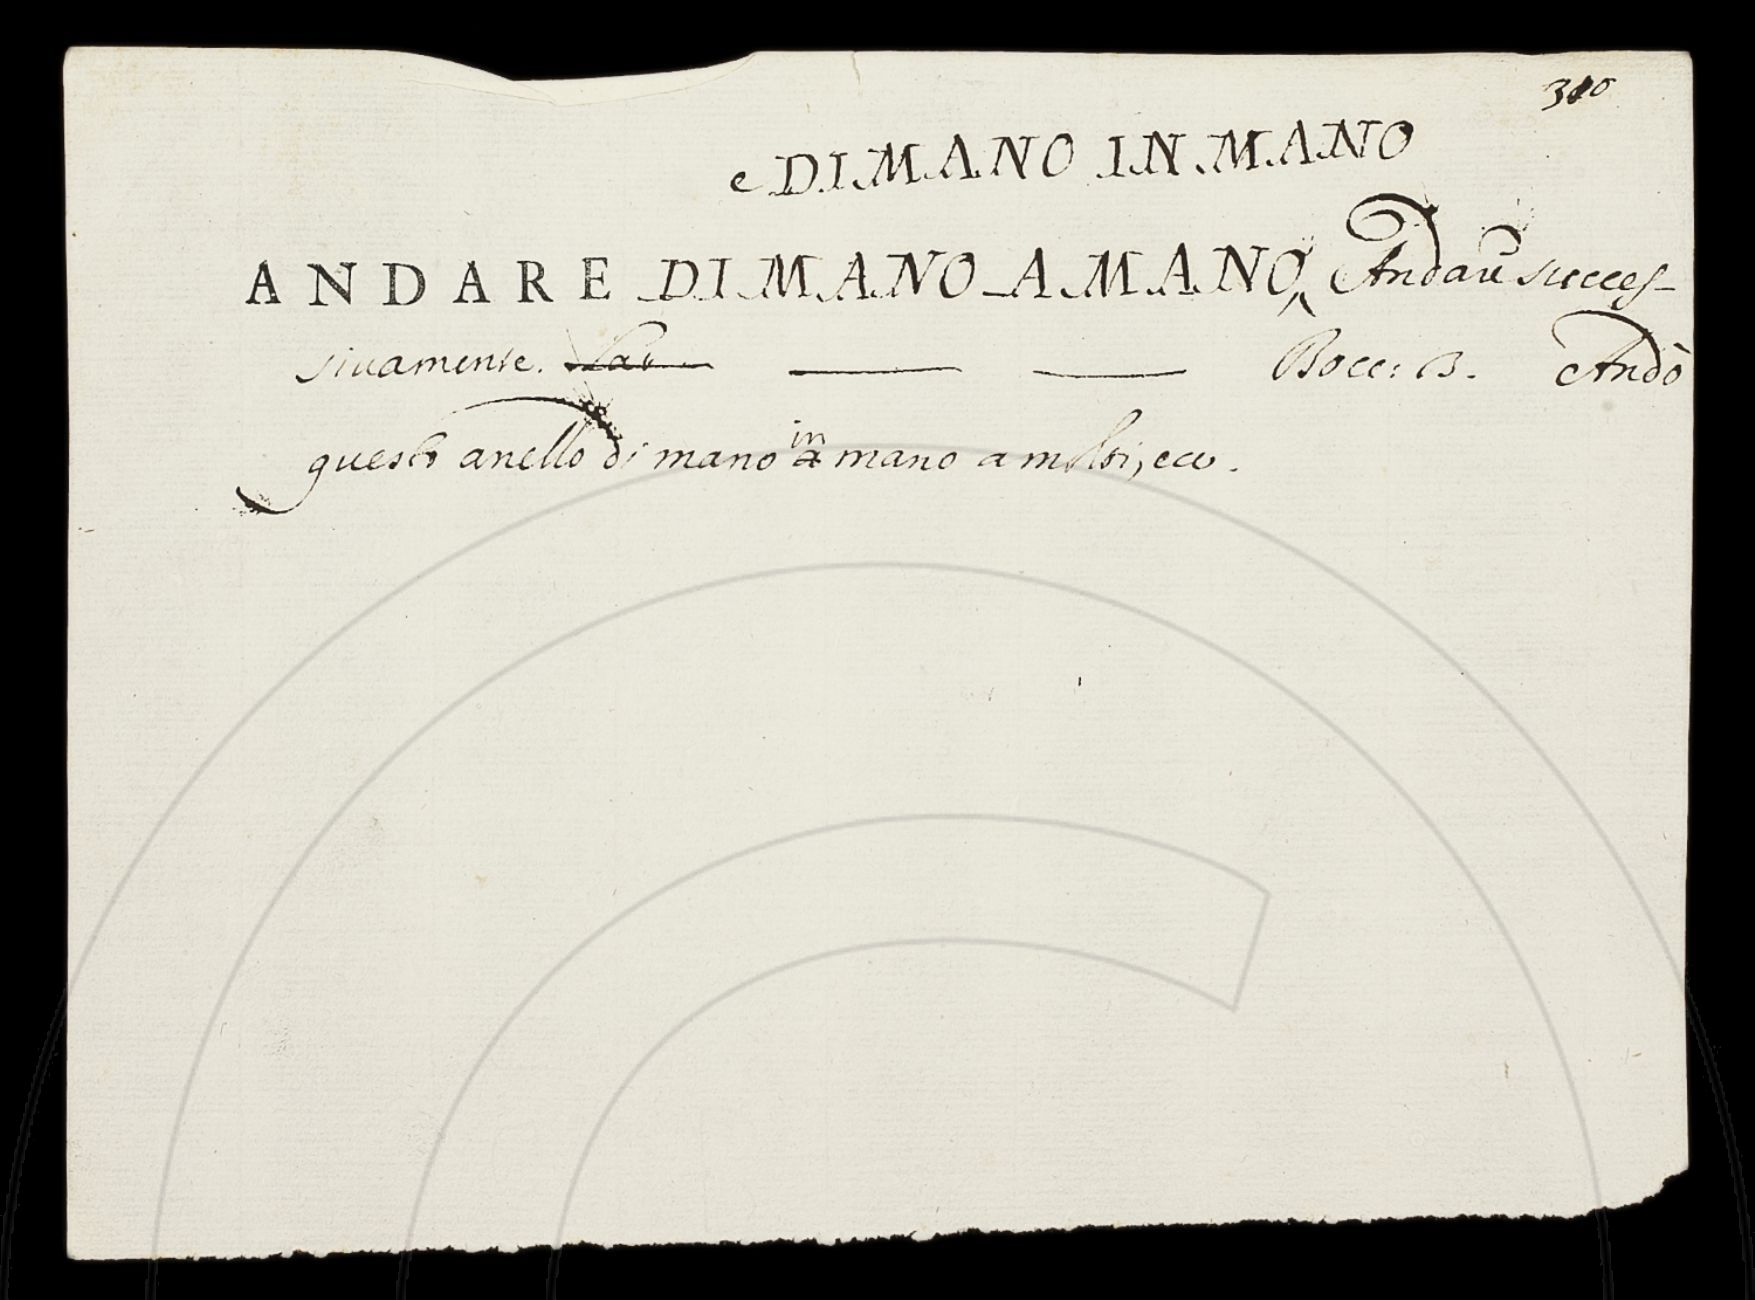 e DI MANO IN MANO
ANDARE DI MANO A MANO, Andare succes-
sivamente. Bocc: B. Andò
questo anello di mano in a mano a molti, ecc.